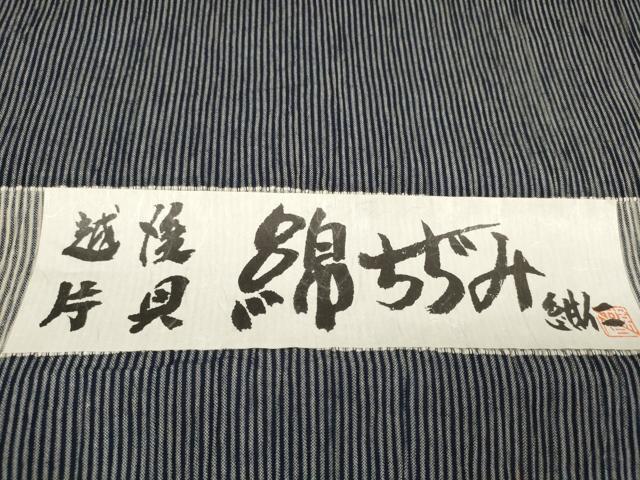 越後
片貝
綿ぢゞみ
紺仁